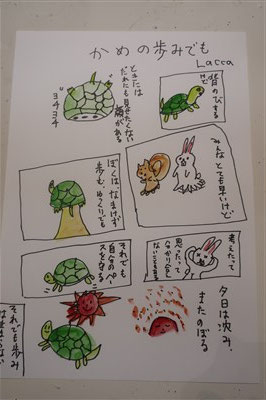 かめの歩みでも
Lacca
背のびする
けど
ときには
だれにも見せたくない
顔がある
ヨチヨチ
みんなとっても早いけど
ぼくは、なまけず
歩む、ゆっくりでも
考えたって
思ったって
それでも
自分のペー
スを守る
夕日は沈み、
またのぼる
それでも歩み
は止まらない